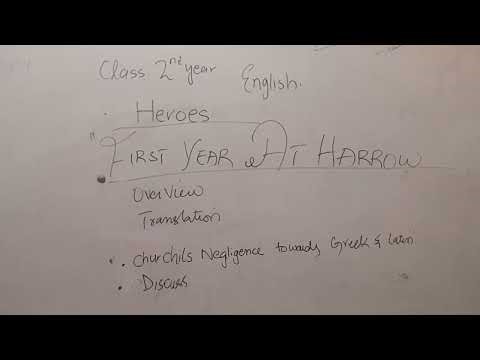 Class 2nd year English.
Heroes
"First Year At Harrow
Overview
Translation
". Churchils Negligence towards Greek & Latin
. Discuss